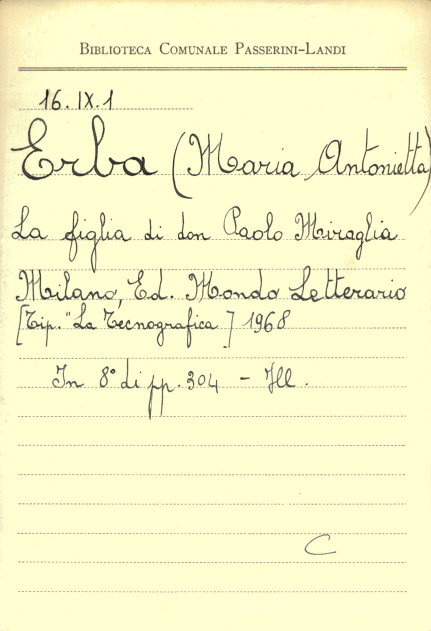 BIBLIOTECA COMUNALE PASSERINI-LANDI
16. IX. 1
Erba (Maria Antonietta)
La figlia di don Paolo Miraglia
Milano, Ed. Mondo Letterario
[Tip. "La Tecnografica] 1968
In 8° di pp. 304 - Ill.
C